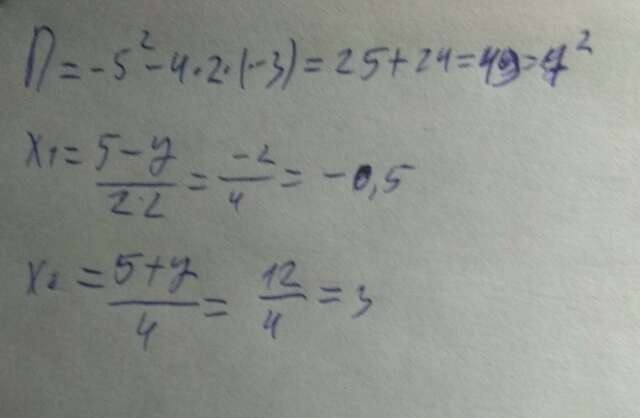 D = -5² - 4·2·(-3) = 25 + 24 = 49 = 7²
x₁ = (5 - 7)/(2·2) = -2/4 = -0,5
x₂ = (5 + 7)/4 = 12/4 = 3